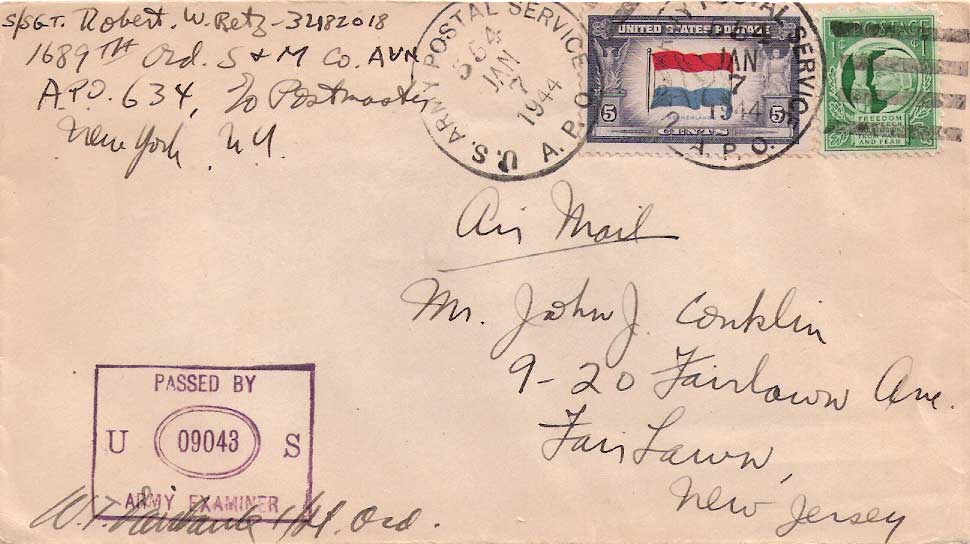 S/SGT. Robert. W. Betz - 32182018
1689TH Ord. S & M Co. AVN
A.P.O. 634, c/o Postmaster
New York, N.Y.
U.S. ARMY POSTAL SERVICE
A. P. O.
554
JAN
7
1944
UNITED STATES POSTAGE
NETHERLANDS
5 CENTS 5
POSTAL SERVICE
JAN
7
1944
A. P. O.
POSTAGE
FREEDOM
OF SPEECH
AND FEAR
Air Mail
Mr. John J. Conklin
9-20 Fairlawn Ave.
Fair Lawn,
New Jersey
PASSED BY
U 09043 S
ARMY EXAMINER
W.T. 1st Lt. Ord.